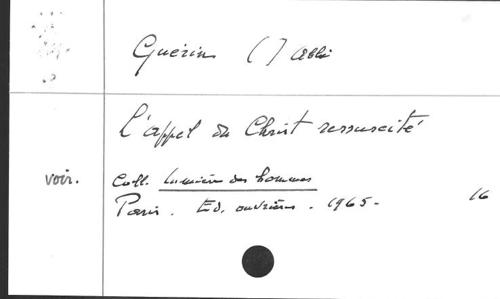 Guérin ( ) Abbé
L'appel du Christ ressuscité
voir. Coll. Lumière des hommes
Paris. Ed. ouvrières. 1965- 16